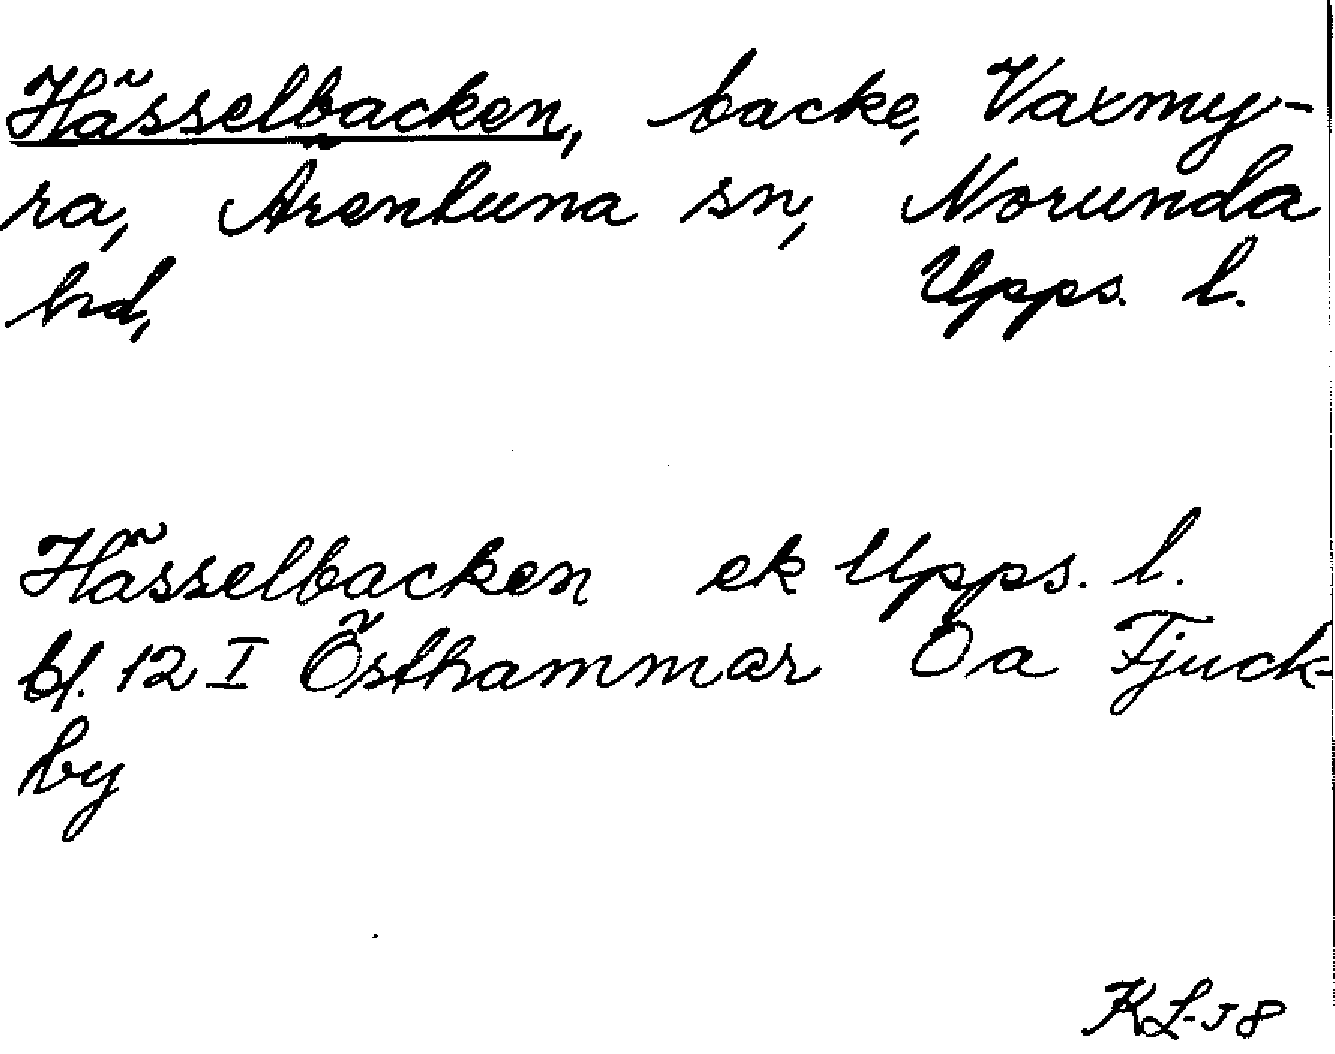 Hässelbacken, backe, Vaxmy-
ra, Ärentuna sn, Norunda
hd, Upps. l.
Hässelbacken ek Upps. l.
bl. 12 I Östhammar Oa Fjuck-
by
KL-58